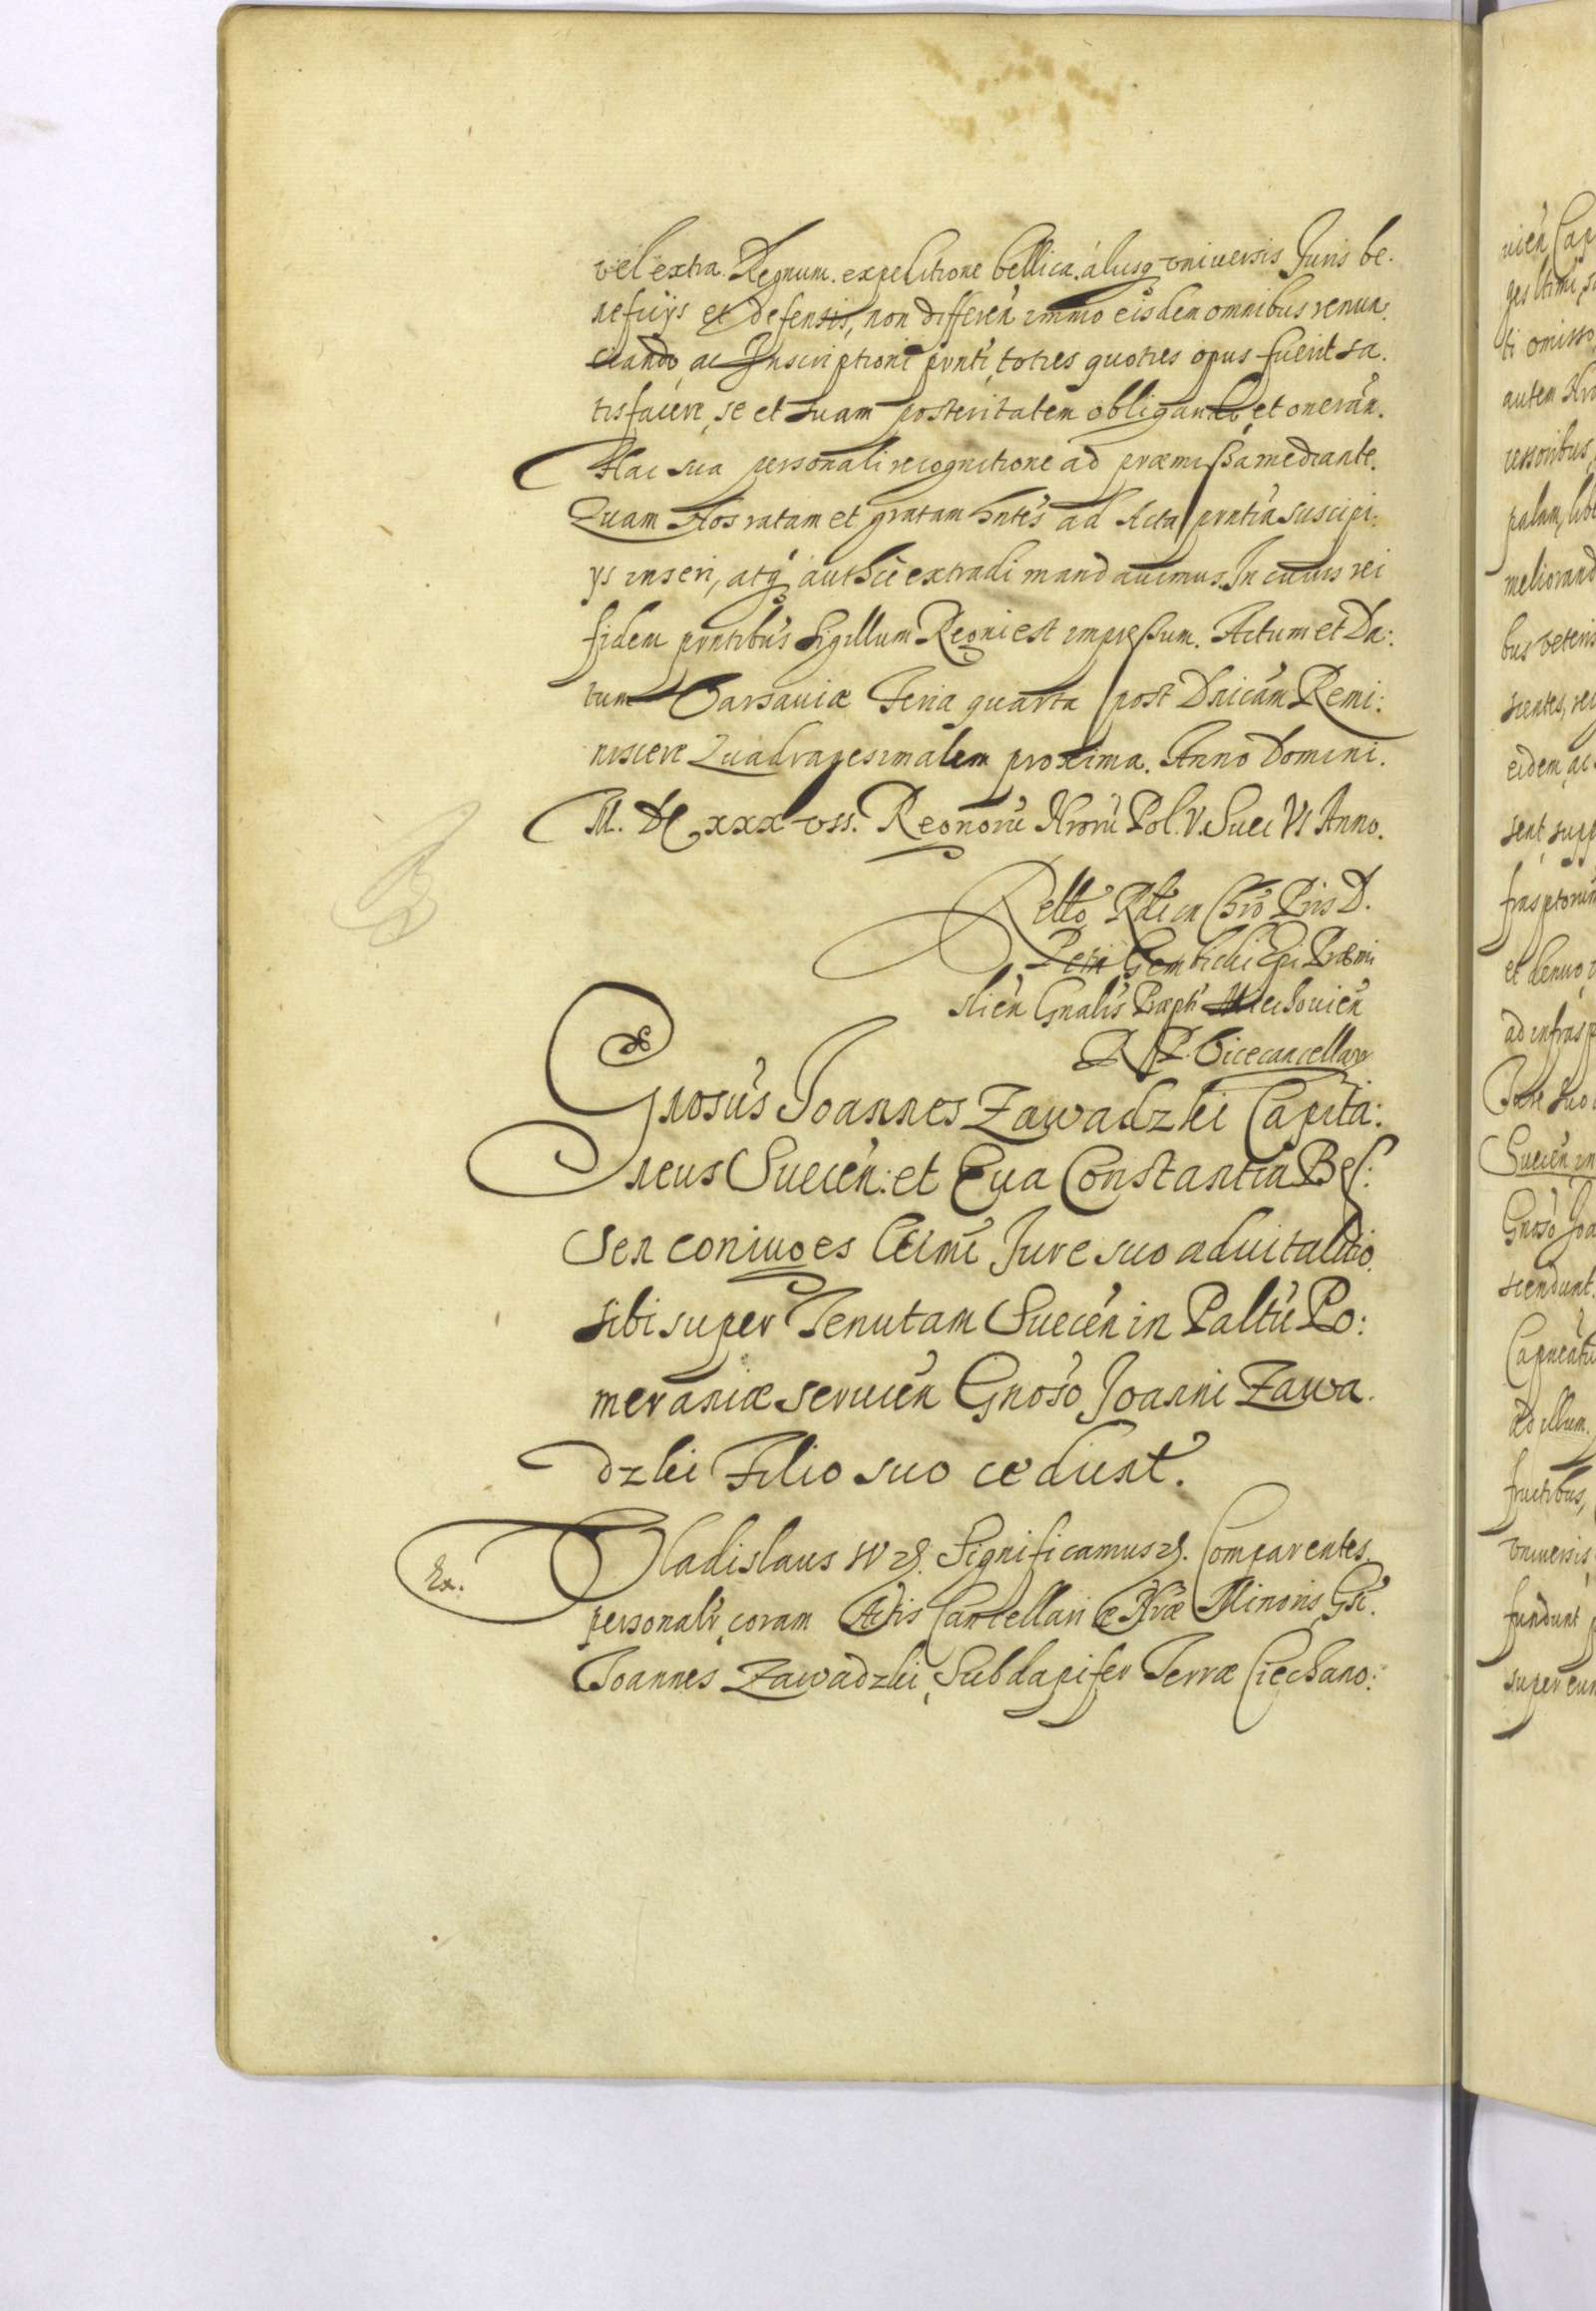 vel extra Regnum expeditione bellica, alijsq vniuersis Juris be.
neficijs et defensis, non differen immo eisdem omnibus renun.
ciando, ac Inscriptioni pnti, toties quoties opus fuerit sa.
tisfacere, se et suam posteritatem obligando, et oneran.
Hac sua personali recognitione ad præmissa mediante.
Quam Nos ratam et gratam hntes ad Acta pntia suscipi:
ys inseri, atq authce extradi mandauimus. In cuius rei
fidem pntibus Sigillum Regni est impressum. Actum et Da:
tum Varsauiæ Feria quarta post Dnicam Remi:
niscere Quadragesimalem proxima. Anno Domini.
M. DC xxx vii. Regnoru Nroru Pol. V. Suec VI Anno.
Rello Rdi in Chro Pris D.
Petri Gembicki Epi Præmi
slien Gnalis Præpti Miechouien
R P. Vicecancellarij
Gnosus Joannes Zawadzki Capita:
neus Suecen: et Eua Constantia Bes:
sen coniuges Ccimi Jure suo aduitalitio
sibi super Tenutam Suecen in Paltu Po:
meraniæ seruien Gnoso Joanni Zawa.
dzki Filio suo cedunt.
Ex.
Vladislaus IV &. Significamus &. Comparentes
personalr coram Actis Cancellariæ Nræ Minoris Gsi.
Joannes Zawadzki, Subdapifer Terræ Ciechano:
uien Cap
autem Nro
cessoribus
palam, libe
meliorand
bus veteris
scientes, re
eidem, ac
sent, supp
frasptorum
et denuo
ad infrasp
Jure suo
Suecen in
Gnoso Joa
scendunt.
Capneatu
ad illum.
fructibus,
vniuersis
fundunt
super eun